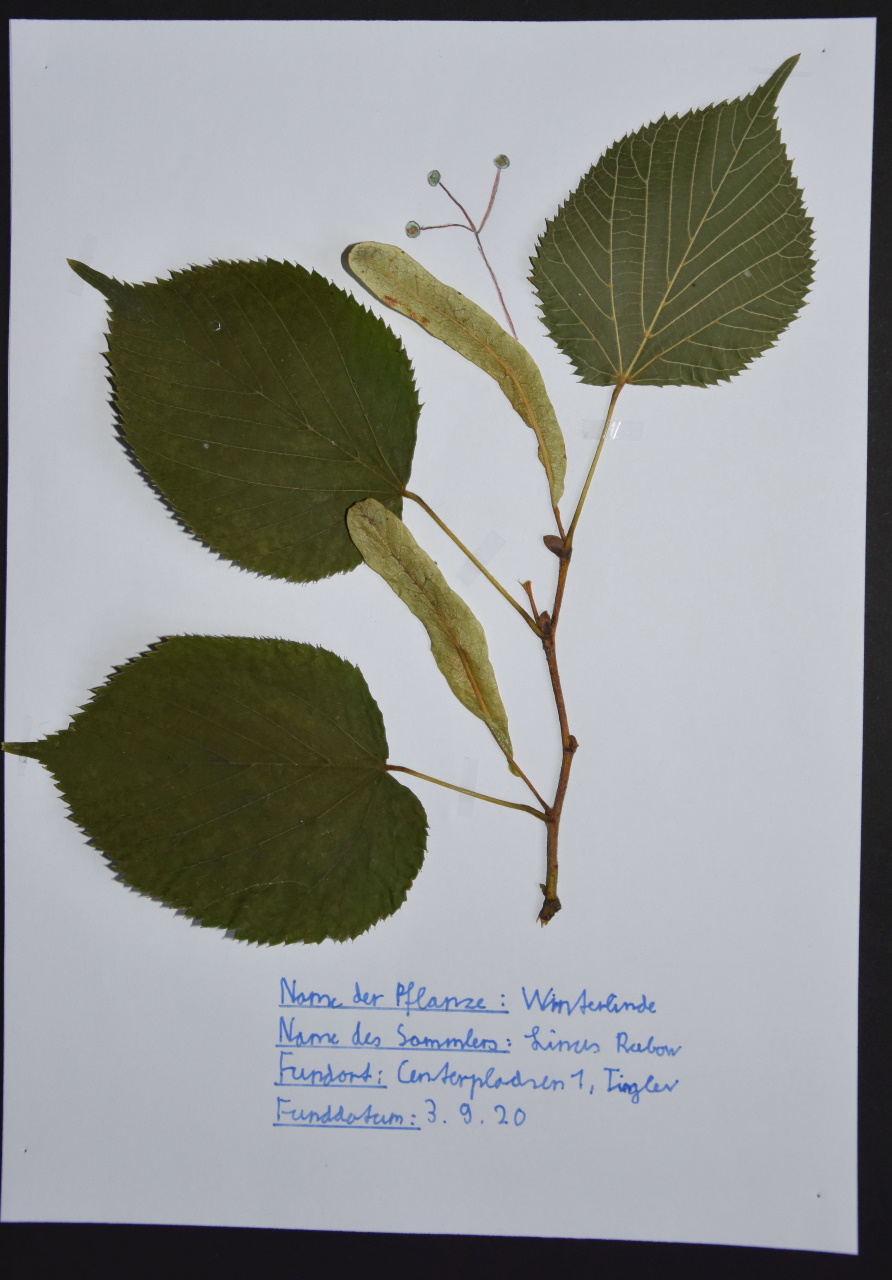 Name der Pflanze: Winterlinde
Name des Sammlers: Linus Rabow
Fundort: Centerpladsen 1, Tinglev
Funddatum: 3.9.20